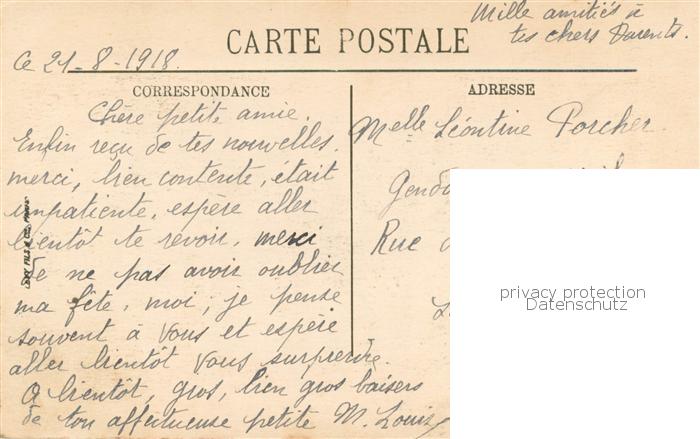 Mille amitiés à
tes chers Parents.
CARTE POSTALE
Ce 21-8-1918.
CORRESPONDANCE
Chère petite amie.
Enfin reçu de tes nouvelles.
merci, bien contente, était
impatiente, espère aller
bientôt te revoir, merci
de ne pas avoir oublier
ma fête, moi, je pense
souvent à vous et espère
aller bientôt vous surprendre.
A bientôt, gros, bien gros baisers
de ton affectueuse petite M. Louise
ADRESSE
Melle Léontine Porcher.
Rue
privacy protection
Datenschutz